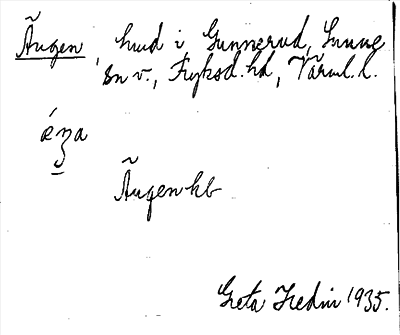 Ängen, hmd i Gunnerud, Sunne
sn v., Fryksd. hd, Värml. l.
Ängen hb
Greta Hedin 1935.